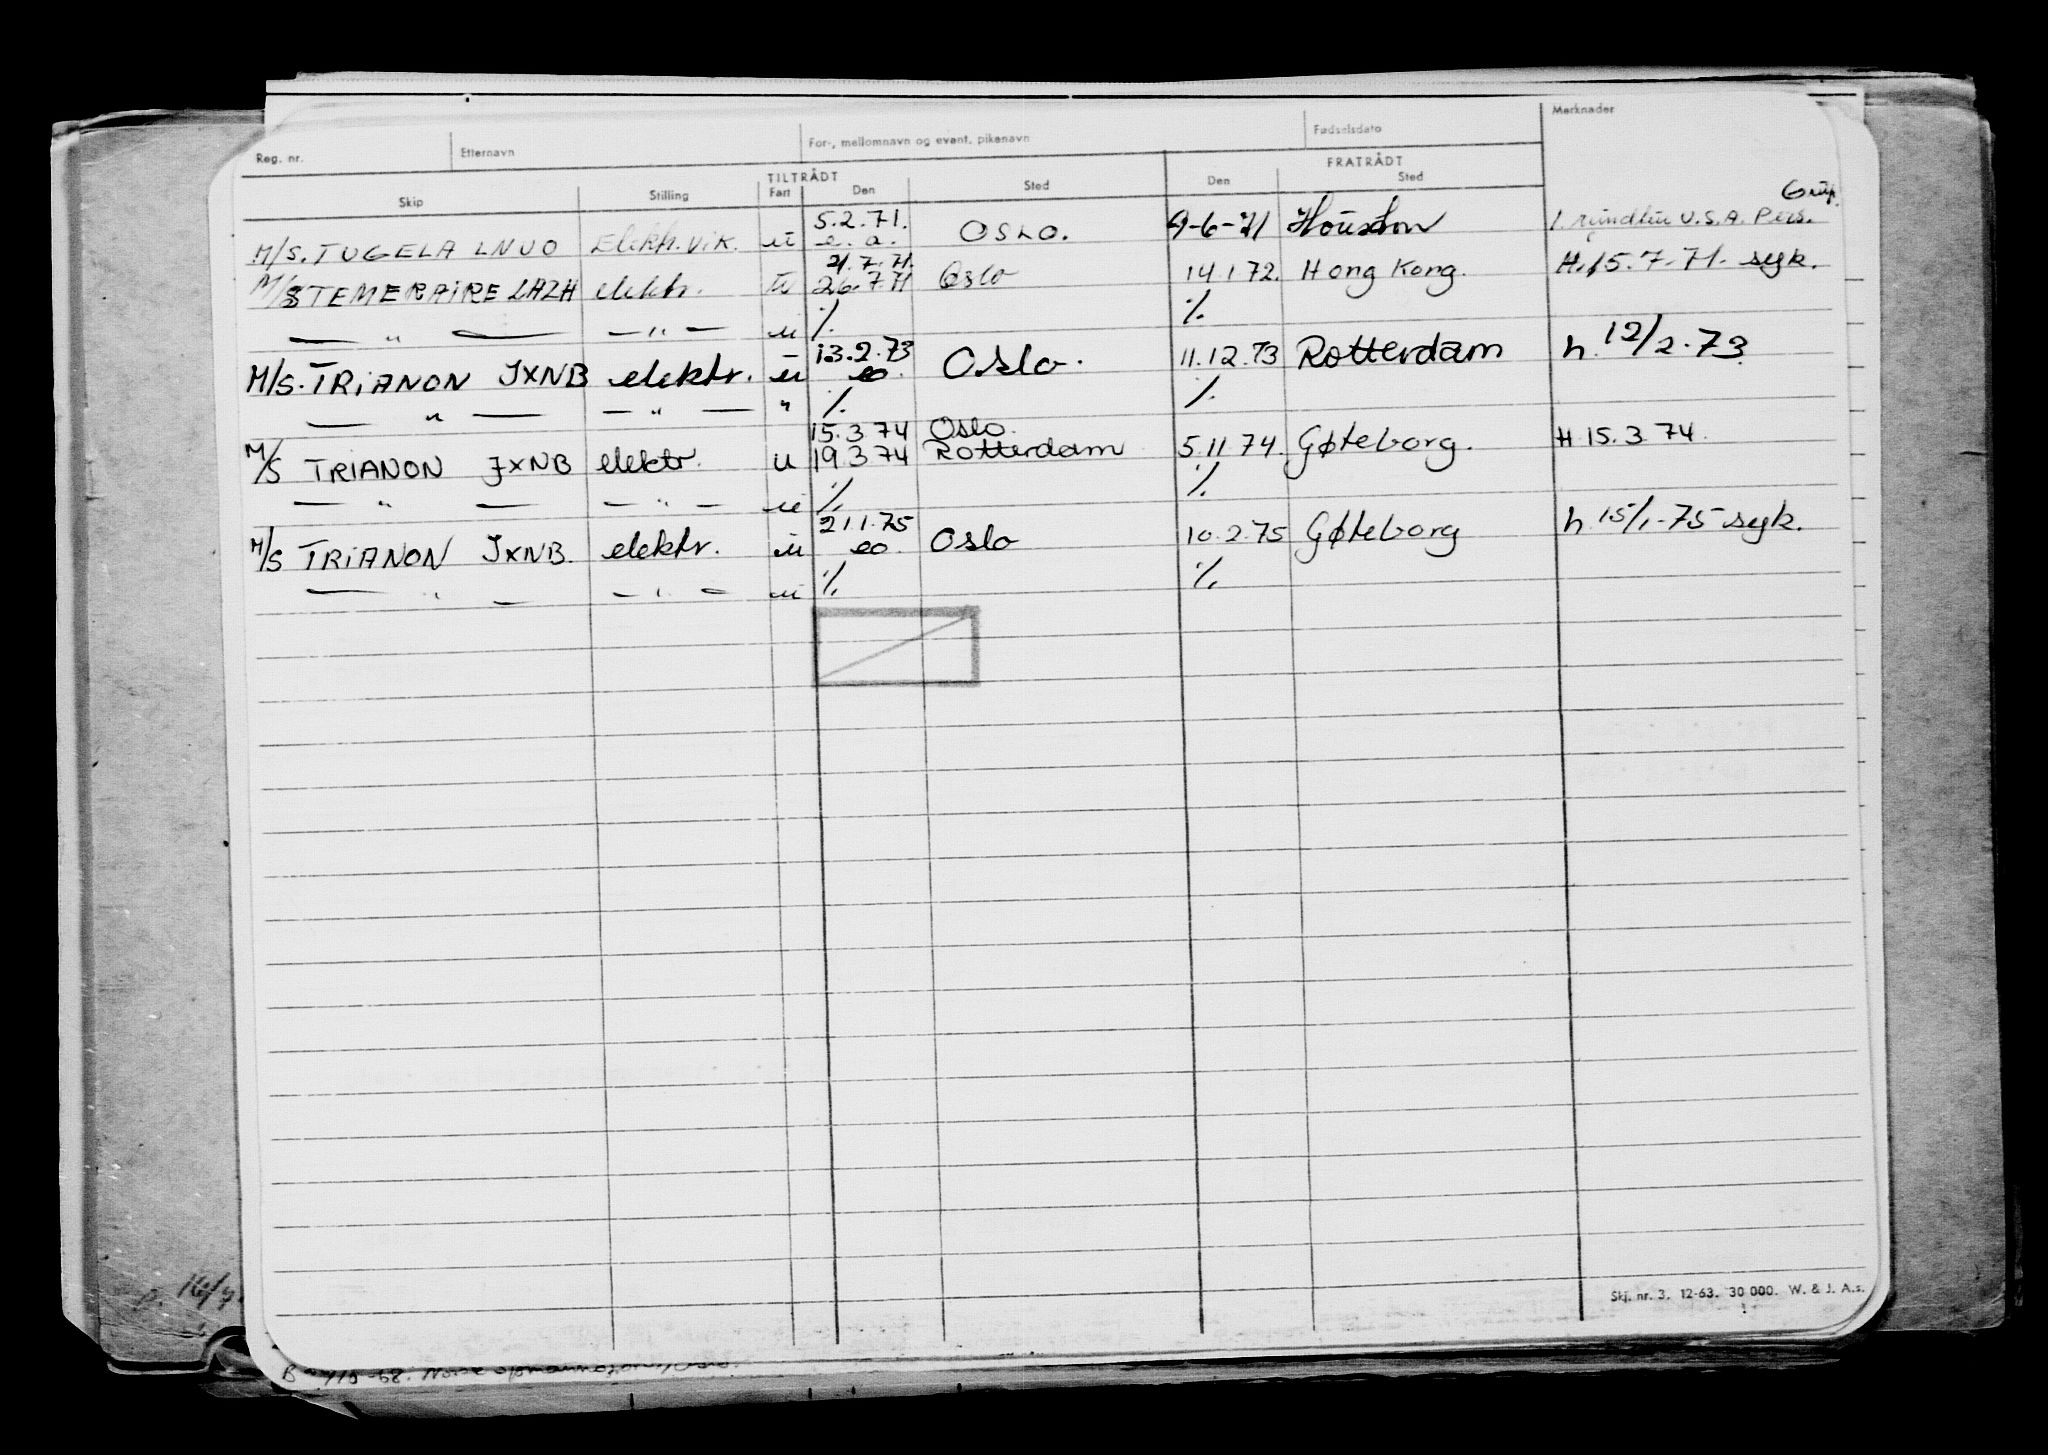 Reg. nr. Etternavn For-, mellomnavn og event. pikenavn Fødselsdato Merknader
TILTRÅDT FRATRÅDT
Skip Stilling Fart Den Sted Den Sted
5.2.71. Grup.
M/S. TUGELA LNUO Elektr. Vik. u e.a. OSLO. 9-6-71 Houston 1. rundtur U.S.A. Pers.
21.7.71.
M/S TEMERAIRE LAZH elektr. u 26.7.71 Oslo 14.1.72. Hong Kong. H. 15.7.71. syk.
— " — — " — u ./. ./.
13.2.73
M/S. TRIANON JXNB elektr. u eo. Oslo. 11.12.73 Rotterdam h. 12/2.73
— " — — " — " ./. ./.
15.3.74 Oslo.
M/S TRIANON JXNB elektr. u 19.3.74 Rotterdam 5.11.74. Gøteborg. H. 15.3.74.
— " — — " — u ./. ./.
21.1.75
M/S TRIANON JXNB. elektr. u eo. Oslo 10.2.75 Gøteborg h. 15/1-75 syk.
— " — — " — u ./. ./.
Skj. nr. 3. 12-63. 30 000. W. & J. A.s.